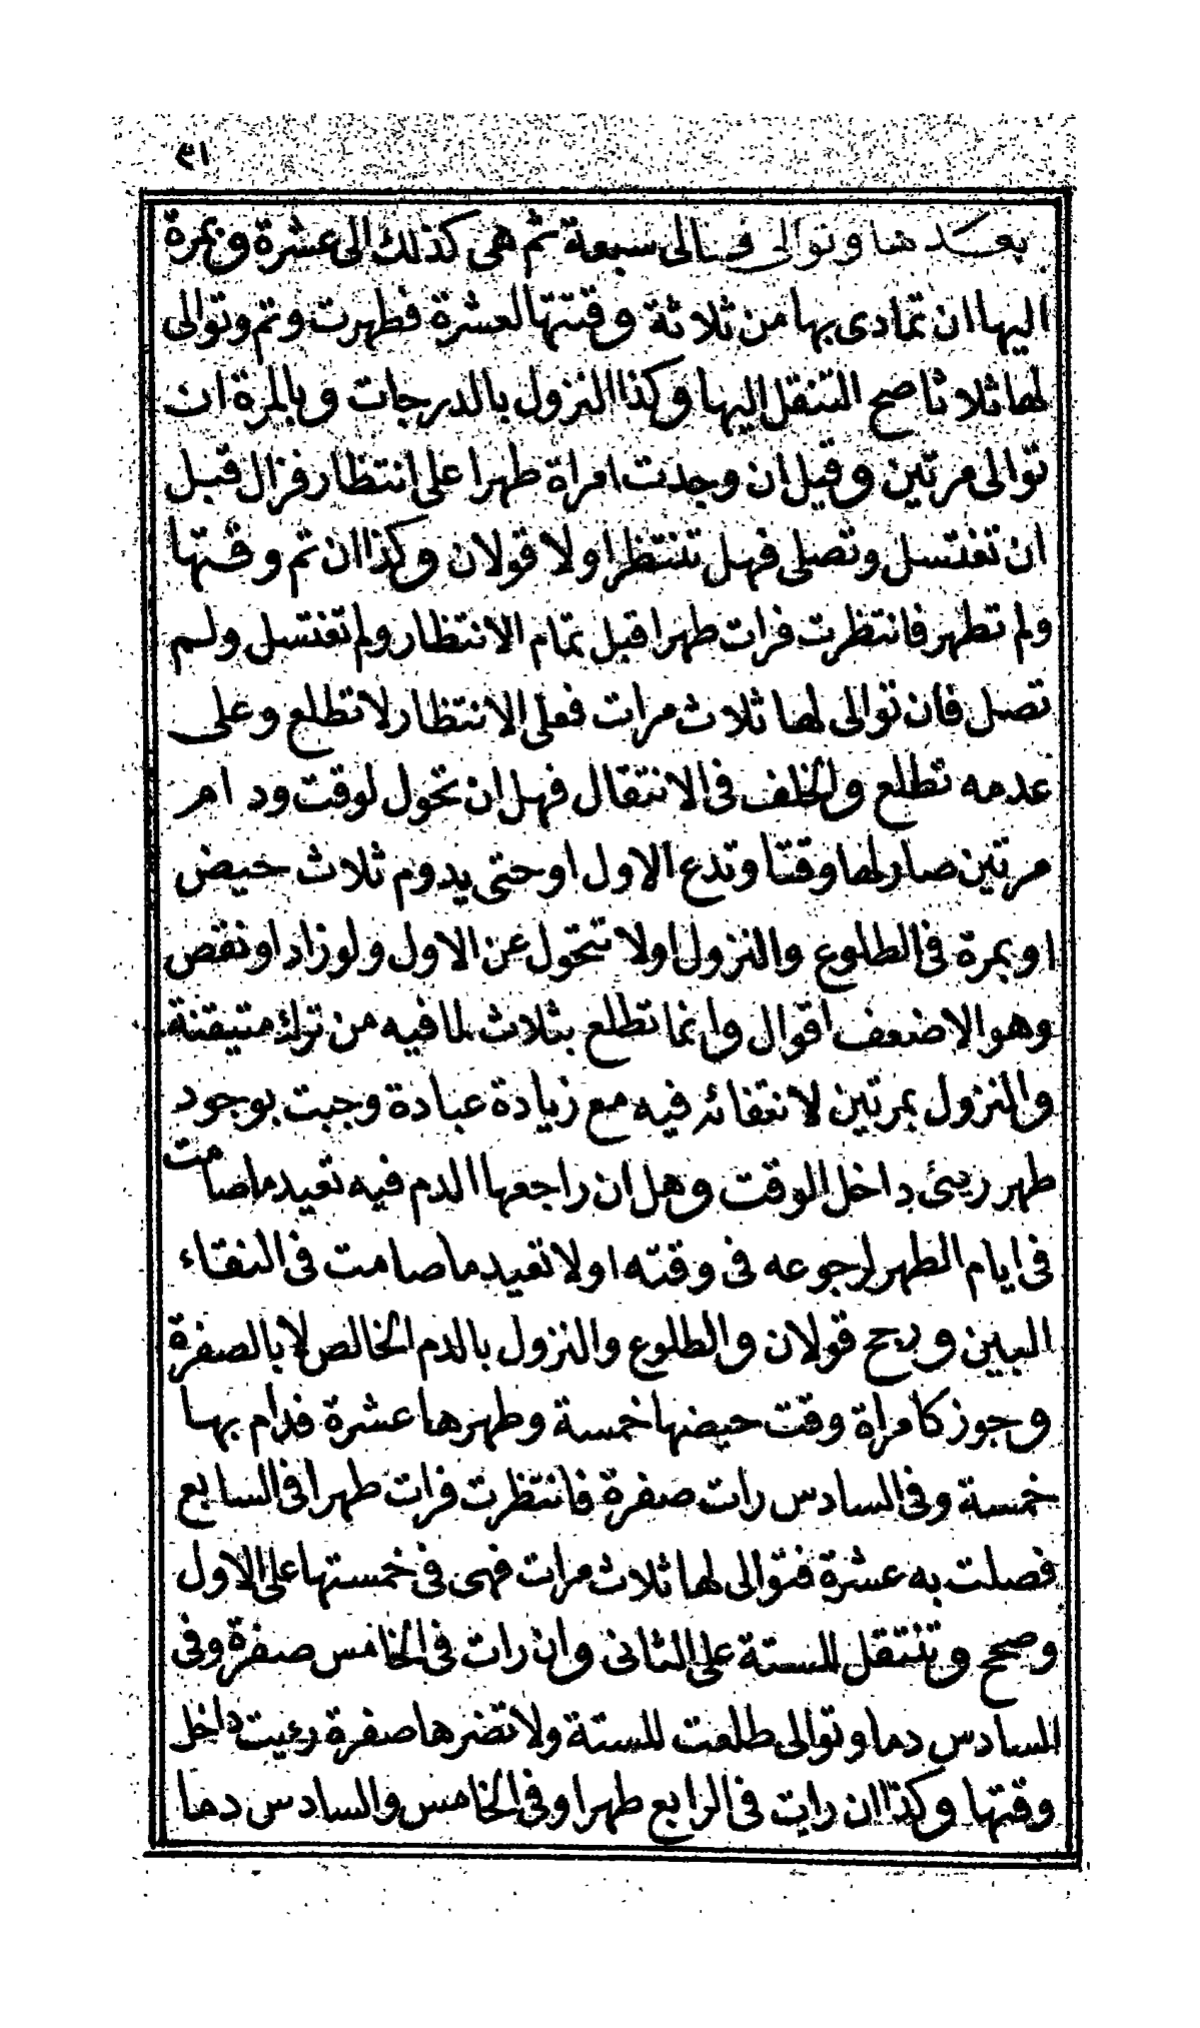 ٣١
بعدها وتوالى فالى سبعة ثم هى كذلك الى عشرة وبمرة
اليها ان تمادى بها من ثلاثة وقتتها العشرة فطهرت وتم وتوالى
لها ثلاثا صح التنقل اليها وكذا النزول بالدرجات وبالمرة ان
توالى مرتين وقيل ان وجدت امراة طهرا على انتظار فزال قبل
ان تغتسل وتصلى فهل تنتظر اولا قولان وكذا ان تم وقتها
ولم تطهر فانتظرت فرات طهرا قبل تمام الانتظار ولم تغتسل ولم
تصل فان توالى لها ثلاث مرات فعلى الانتظار لا تطلع وعلى
عدمه تطلع والخلف فى الانتقال فهل ان تحول لوقت ودام
مرتين صار لها وقتا وتدع الاول او حتى يدوم ثلاث حيض
او بمرة فى الطلوع والنزول اولا تتحول عن الاول ولو زاد او نقص
وهو الاضعف اقوال وانما تطلع بثلاث لما فيه من ترك متيقنة
والنزول بمرتين لانتفائه فيه مع زيادة عبادة وجبت بوجود
طهر ريئ داخل الوقت وهل ان راجعها الدم فيه تعيد ما صامت
فى ايام الطهر لرجوعه فى وقته اولا تعيد ما صامت فى النقاء
البين ورجح قولان والطلوع والنزول بالدم الخالص لا بالصفرة
وجوز كامراة وقت حيضها خمسة وطهرها عشرة فدام بها
خمسة وفى السادس رات صفرة فانتظرت فرات طهرا فى السابع
فصلت به عشرة فتوالى لها ثلاث مرات فهى فى خمستها على الاول
وصحح وتنتقل للستة على الثانى وان رات فى الخامس صفرة وفى
السادس دما وتوالى طلعت للستة ولا تضرها صفرة رءيت داخل
وقتها وكذا ان رات فى الرابع طهرا وفى الخامس والسادس دما